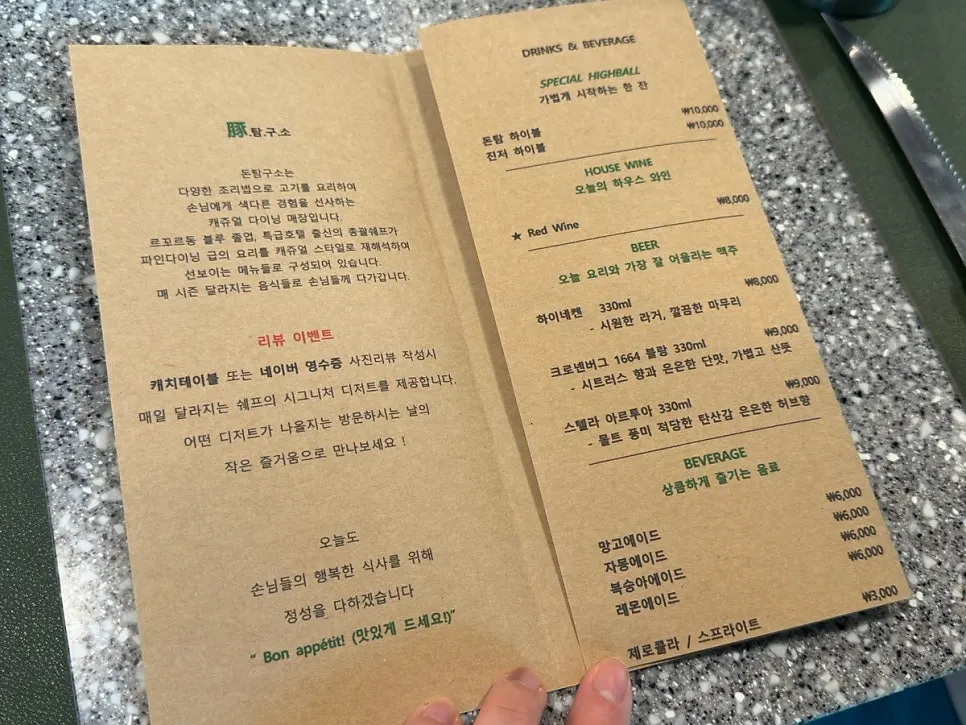 豚.탐.구.소
돈탐구소는
다양한 조리법으로 고기를 요리하여
손님에게 색다른 경험을 선사하는
캐쥬얼 다이닝 매장입니다.
르꼬르동 블루 졸업, 특급호텔 출신의 총괄쉐프가
파인다이닝 급의 요리를 캐쥬얼 스타일로 재해석하여
선보이는 메뉴들로 구성되어 있습니다.
매 시즌 달라지는 음식들로 손님들께 다가갑니다.
리뷰 이벤트
캐치테이블 또는 네이버 영수증 사진리뷰 작성시
매일 달라지는 쉐프의 시그니처 디저트를 제공합니다.
어떤 디저트가 나올지는 방문하시는 날의
작은 즐거움으로 만나보세요 !
오늘도
손님들의 행복한 식사를 위해
정성을 다하겠습니다
“ Bon appétit! (맛있게 드세요!)”
DRINKS & BEVERAGE
SPECIAL HIGHBALL
가볍게 시작하는 한 잔
돈탐 하이볼 ₩10,000
진저 하이볼 ₩10,000
HOUSE WINE
오늘의 하우스 와인
★ Red Wine ₩8,000
BEER
오늘 요리와 가장 잘 어울리는 맥주
하이네켄 330ml ₩8,000
- 시원한 라거, 깔끔한 마무리
크로넨버그 1664 블랑 330ml ₩9,000
- 시트러스 향과 은은한 단맛, 가볍고 산뜻
스텔라 아르투아 330ml ₩9,000
- 몰트 풍미 적당한 탄산감 은은한 허브향
BEVERAGE
상큼하게 즐기는 음료
망고에이드 ₩6,000
자몽에이드 ₩6,000
복숭아에이드 ₩6,000
레몬에이드 ₩6,000
제로콜라 / 스프라이트 ₩3,000